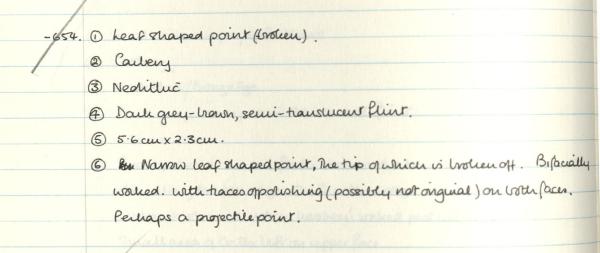 -654. ① Leaf shaped point (broken).
② Cadbury
③ Neolithic
④ Dark grey-brown, semi-translucent flint.
⑤ 5.6cm x 2.3cm.
⑥ Narrow leaf shaped point, the tip of which is broken off. Bifacially
worked. with traces of polishing (possibly not original) on both faces.
Perhaps a projectile point.